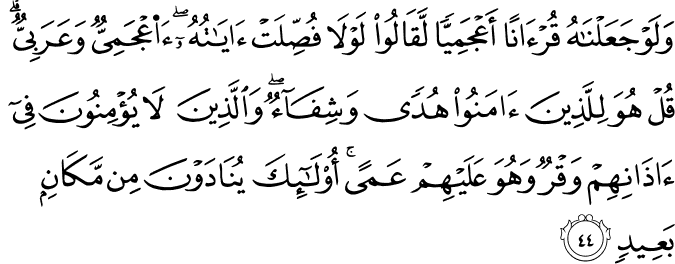 وَلَوْ جَعَلْنَٰهُ قُرْءَانًا أَعْجَمِيًّا لَّقَالُوا۟ لَوْلَا فُصِّلَتْ ءَايَٰتُهُۥٓ ۖ ءَا۬عْجَمِىٌّ وَعَرَبِىٌّ ۗ
قُلْ هُوَ لِلَّذِينَ ءَامَنُوا۟ هُدًى وَشِفَآءٌ ۖ وَٱلَّذِينَ لَا يُؤْمِنُونَ فِىٓ
ءَاذَانِهِمْ وَقْرٌ وَهُوَ عَلَيْهِمْ عَمًى ۚ أُو۟لَٰٓئِكَ يُنَادَوْنَ مِن مَّكَانٍۭ
بَعِيدٍ ٤٤